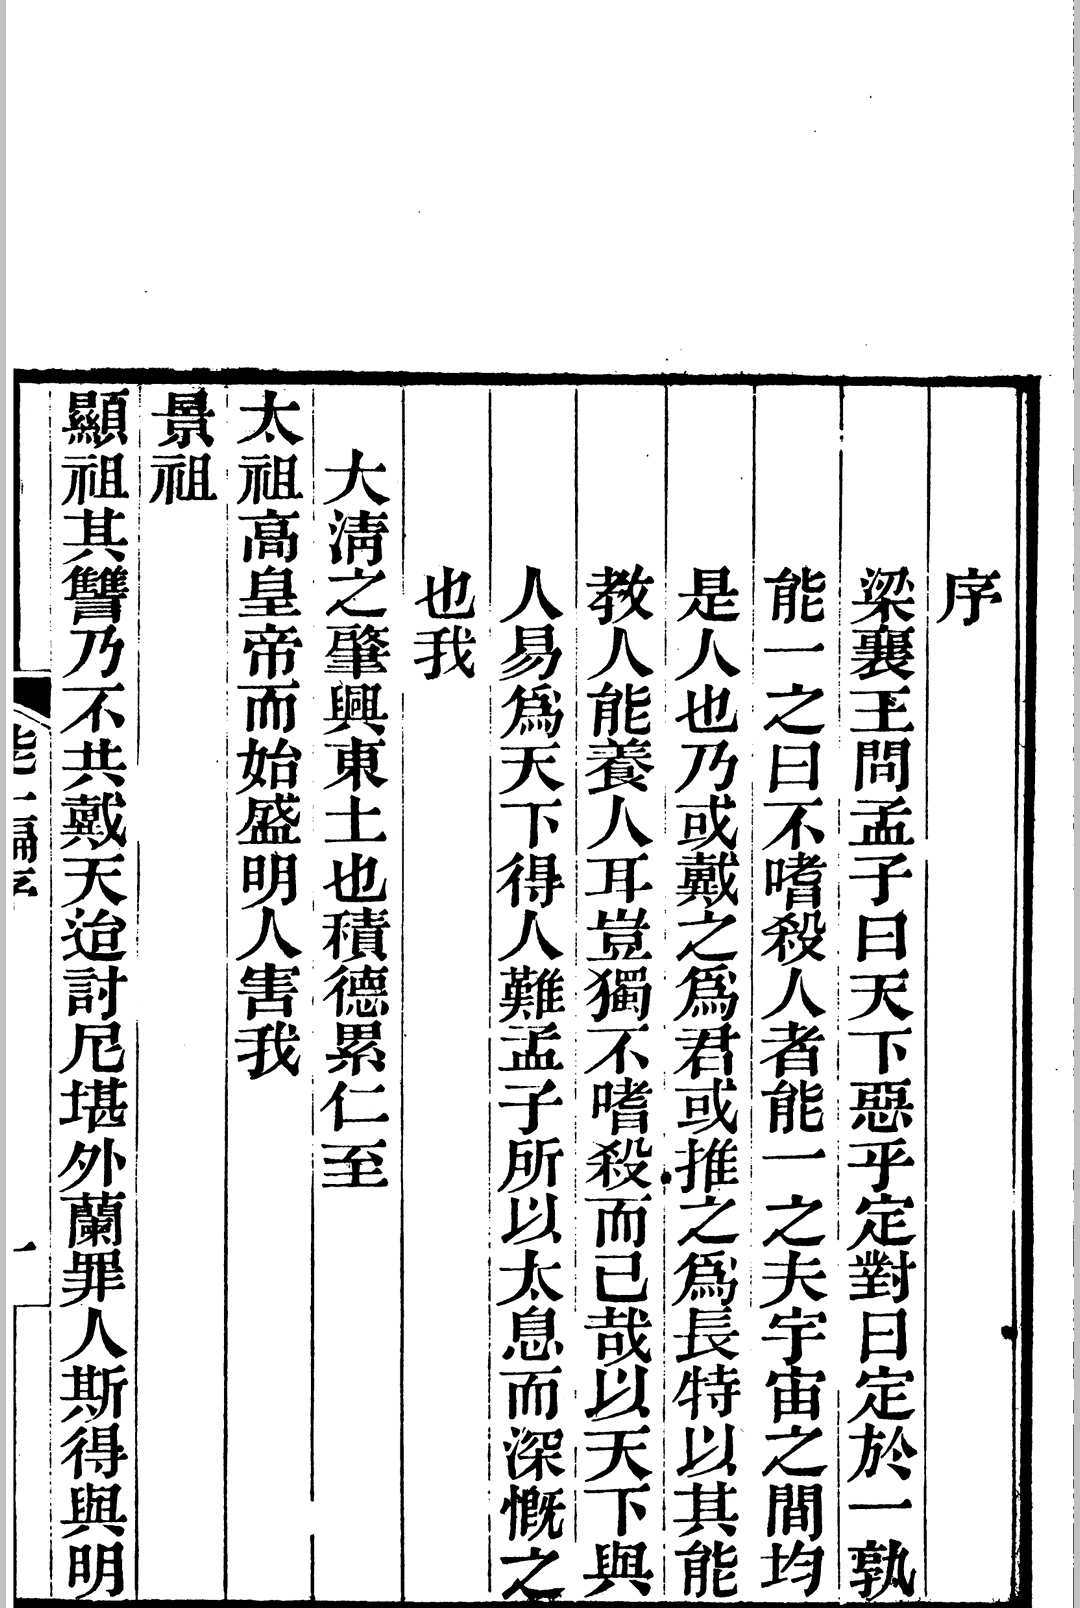 序
梁襄王問孟子曰天下惡乎定對曰定於一孰
能一之曰不嗜殺人者能一之夫宇宙之間均
是人也乃或戴之爲君或推之爲長特以其能
教人能養人耳豈獨不嗜殺而已哉以天下與
人易爲天下得人難孟子所以太息而深慨之
也我
大淸之肈興東土也積德累仁至
太祖高皇帝而始盛明人害我
景祖
顯祖其讐乃不共戴天迨討尼堪外蘭罪人斯得與明
能一編序
一